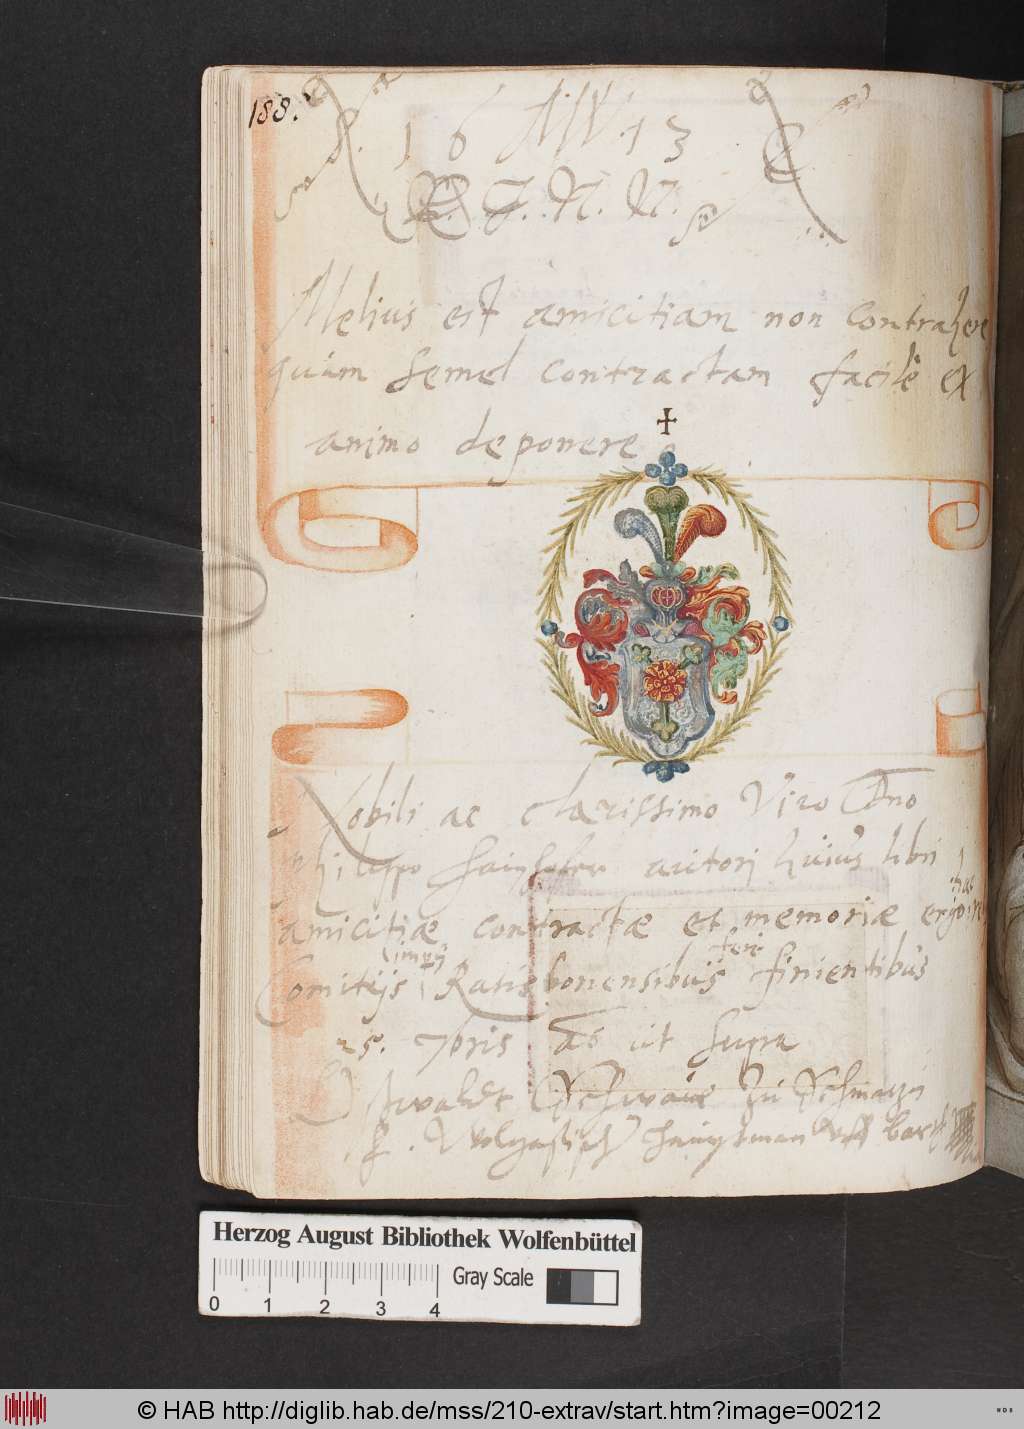 188.
16 MW 13
J. N. N.
Melius est amicitiam non contrahere
quám semel contractam facilè ex
animo deponere
Nobili ac clarissimo Viro Dno
Philippo Hainhofer autorj huius libri
amicitiæ contractæ et memoriæ ergo hæc
Comitijs impij Ratisbonensibus ferè finientibus
25. 7bris Aõ ut supra
F. Wolgastisch haupfman uff
Herzog August Bibliothek Wolfenbüttel
Gray Scale
0 1 2 3 4
© HAB http://diglib.hab.de/mss/210-extrav/start.htm?image=00212
HAB